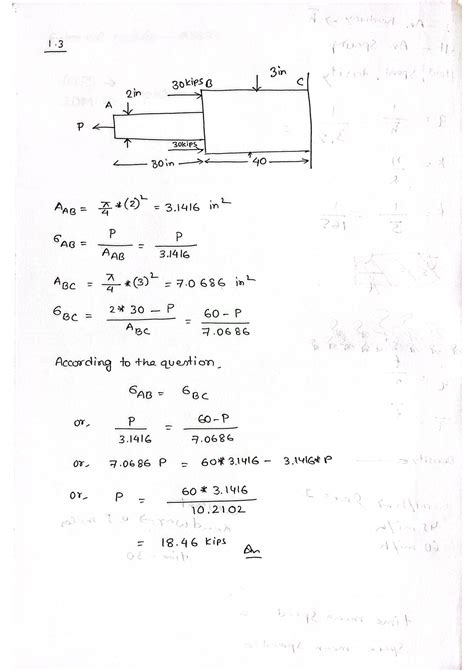 1.3
30kips B
3in
C
2in
A
P
30kips
30in
40
A_AB = π/4 * (2)² = 3.1416 in²
σ_AB = P/A_AB = P/3.1416
A_BC = π/4 * (3)² = 7.0686 in²
σ_BC = (2*30 - P)/A_BC = (60-P)/7.0686
According to the question,
σ_AB = σ_BC
or, P/3.1416 = (60-P)/7.0686
or, 7.0686 P = 60*3.1416 - 3.1416*P
or, P = (60*3.1416)/10.2102
= 18.46 kips Ans